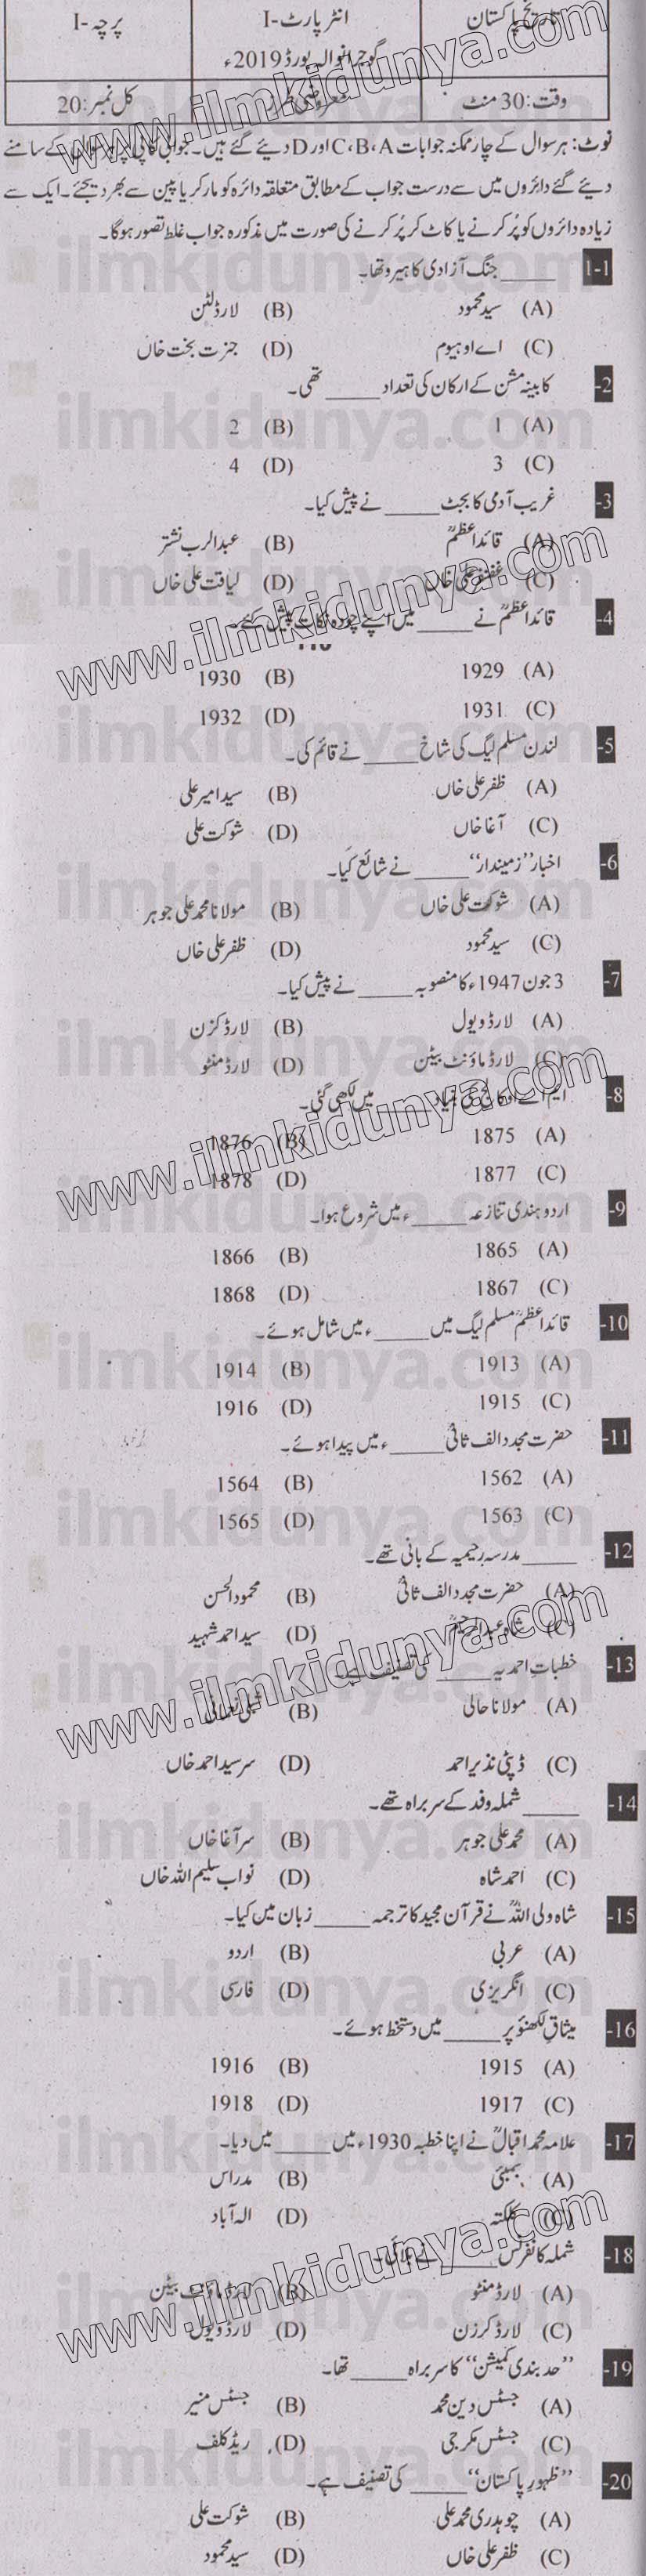 تاریخ پاکستان انٹر پارٹ-I پرچہ-I
گوجرانوالہ بورڈ 2019ء
وقت: 30 منٹ معروضی طرز کل نمبر: 20
نوٹ: ہر سوال کے چار ممکنہ جوابات C،B،A اور D دیئے گئے ہیں۔ جوابی کاپی پر ہر سوال کے سامنے
دیئے گئے دائروں میں سے درست جواب کے مطابق متعلقہ دائرہ کو مارکر یا پین سے بھر دیجئے۔ ایک سے
زیادہ دائروں کو پُر کرنے یا کاٹ کر پُر کرنے کی صورت میں مذکورہ جواب غلط تصور ہوگا۔
1-1 _____ جنگ آزادی کا ہیرو تھا۔
(A) سید محمود (B) لارڈ لٹن
(C) اے او ہیوم (D) جنرت بخت خاں
-2 کابینہ مشن کے ارکان کی تعداد _____ تھی۔
(A) 1 (B) 2
(C) 3 (D) 4
-3 غریب آدمی کا بجٹ _____ نے پیش کیا۔
(A) قائداعظمؒ (B) عبدالرب نشتر
(C) غضنفر علی خاں (D) لیاقت علی خاں
-4 قائداعظمؒ نے _____ میں اپنے چودہ نکات پیش کئے۔
(A) 1929 (B) 1930
(C) 1931 (D) 1932
-5 لندن مسلم لیگ کی شاخ _____ نے قائم کی۔
(A) ظفر علی خاں (B) سید امیر علی
(C) آغا خاں (D) شوکت علی
-6 اخبار ”زمیندار“ _____ نے شائع کیا۔
(A) شوکت علی خاں (B) مولانا محمد علی جوہر
(C) سید محمود (D) ظفر علی خاں
-7 3 جون 1947ء کا منصوبہ _____ نے پیش کیا۔
(A) لارڈ ویول (B) لارڈ کزن
(C) لارڈ ماؤنٹ بیٹن (D) لارڈ منٹو
-8 ایم اے او کالج کی بنیاد _____ میں رکھی گئی۔
(A) 1875 (B) 1876
(C) 1877 (D) 1878
-9 اردو ہندی تنازعہ _____ء میں شروع ہوا۔
(A) 1865 (B) 1866
(C) 1867 (D) 1868
-10 قائداعظمؒ مسلم لیگ میں _____ء میں شامل ہوئے۔
(A) 1913 (B) 1914
(C) 1915 (D) 1916
-11 حضرت مجدد الف ثانیؒ _____ء میں پیدا ہوئے۔
(A) 1562 (B) 1564
(C) 1563 (D) 1565
-12 _____ مدرسہ رحیمیہ کے بانی تھے۔
(A) حضرت مجدد الف ثانیؒ (B) محمود الحسن
(C) شاہ عبدالرحیمؒ (D) سید احمد شہید
-13 خطبات احمدیہ _____ کی تصنیف ہے۔
(A) مولانا حالی (B) شبلی نعمانی
(C) ڈپٹی نذیر احمد (D) سرسید احمد خاں
-14 _____ شملہ وفد کے سربراہ تھے۔
(A) محمد علی جوہر (B) سر آغا خاں
(C) احمد شاہ (D) نواب سلیم اللہ خاں
-15 شاہ ولی اللہؒ نے قرآن مجید کا ترجمہ _____ زبان میں کیا۔
(A) عربی (B) اردو
(C) انگریزی (D) فارسی
-16 میثاقِ لکھنؤ پر _____ میں دستخط ہوئے۔
(A) 1915 (B) 1916
(C) 1917 (D) 1918
-17 علامہ محمد اقبالؒ نے اپنا خطبہ 1930ء میں _____ میں دیا۔
(A) بمبئی (B) مدراس
(C) کلکتہ (D) الہ آباد
-18 شملہ کانفرنس _____ نے بلائی۔
(A) لارڈ منٹو (B) لارڈ ماؤنٹ بیٹن
(C) لارڈ کرزن (D) لارڈ ویول
-19 ”حد بندی کمیشن“ کا سربراہ _____ تھا۔
(A) جسٹس دین محمد (B) جسٹس منیر
(C) جسٹس مکرجی (D) ریڈ کلف
-20 ”ظہورِ پاکستان“ _____ کی تصنیف ہے۔
(A) چوہدری محمد علی (B) شوکت علی
(C) ظفر علی خاں (D) سید محمود
www.ilmkidunya.com
ilmkidunya.com